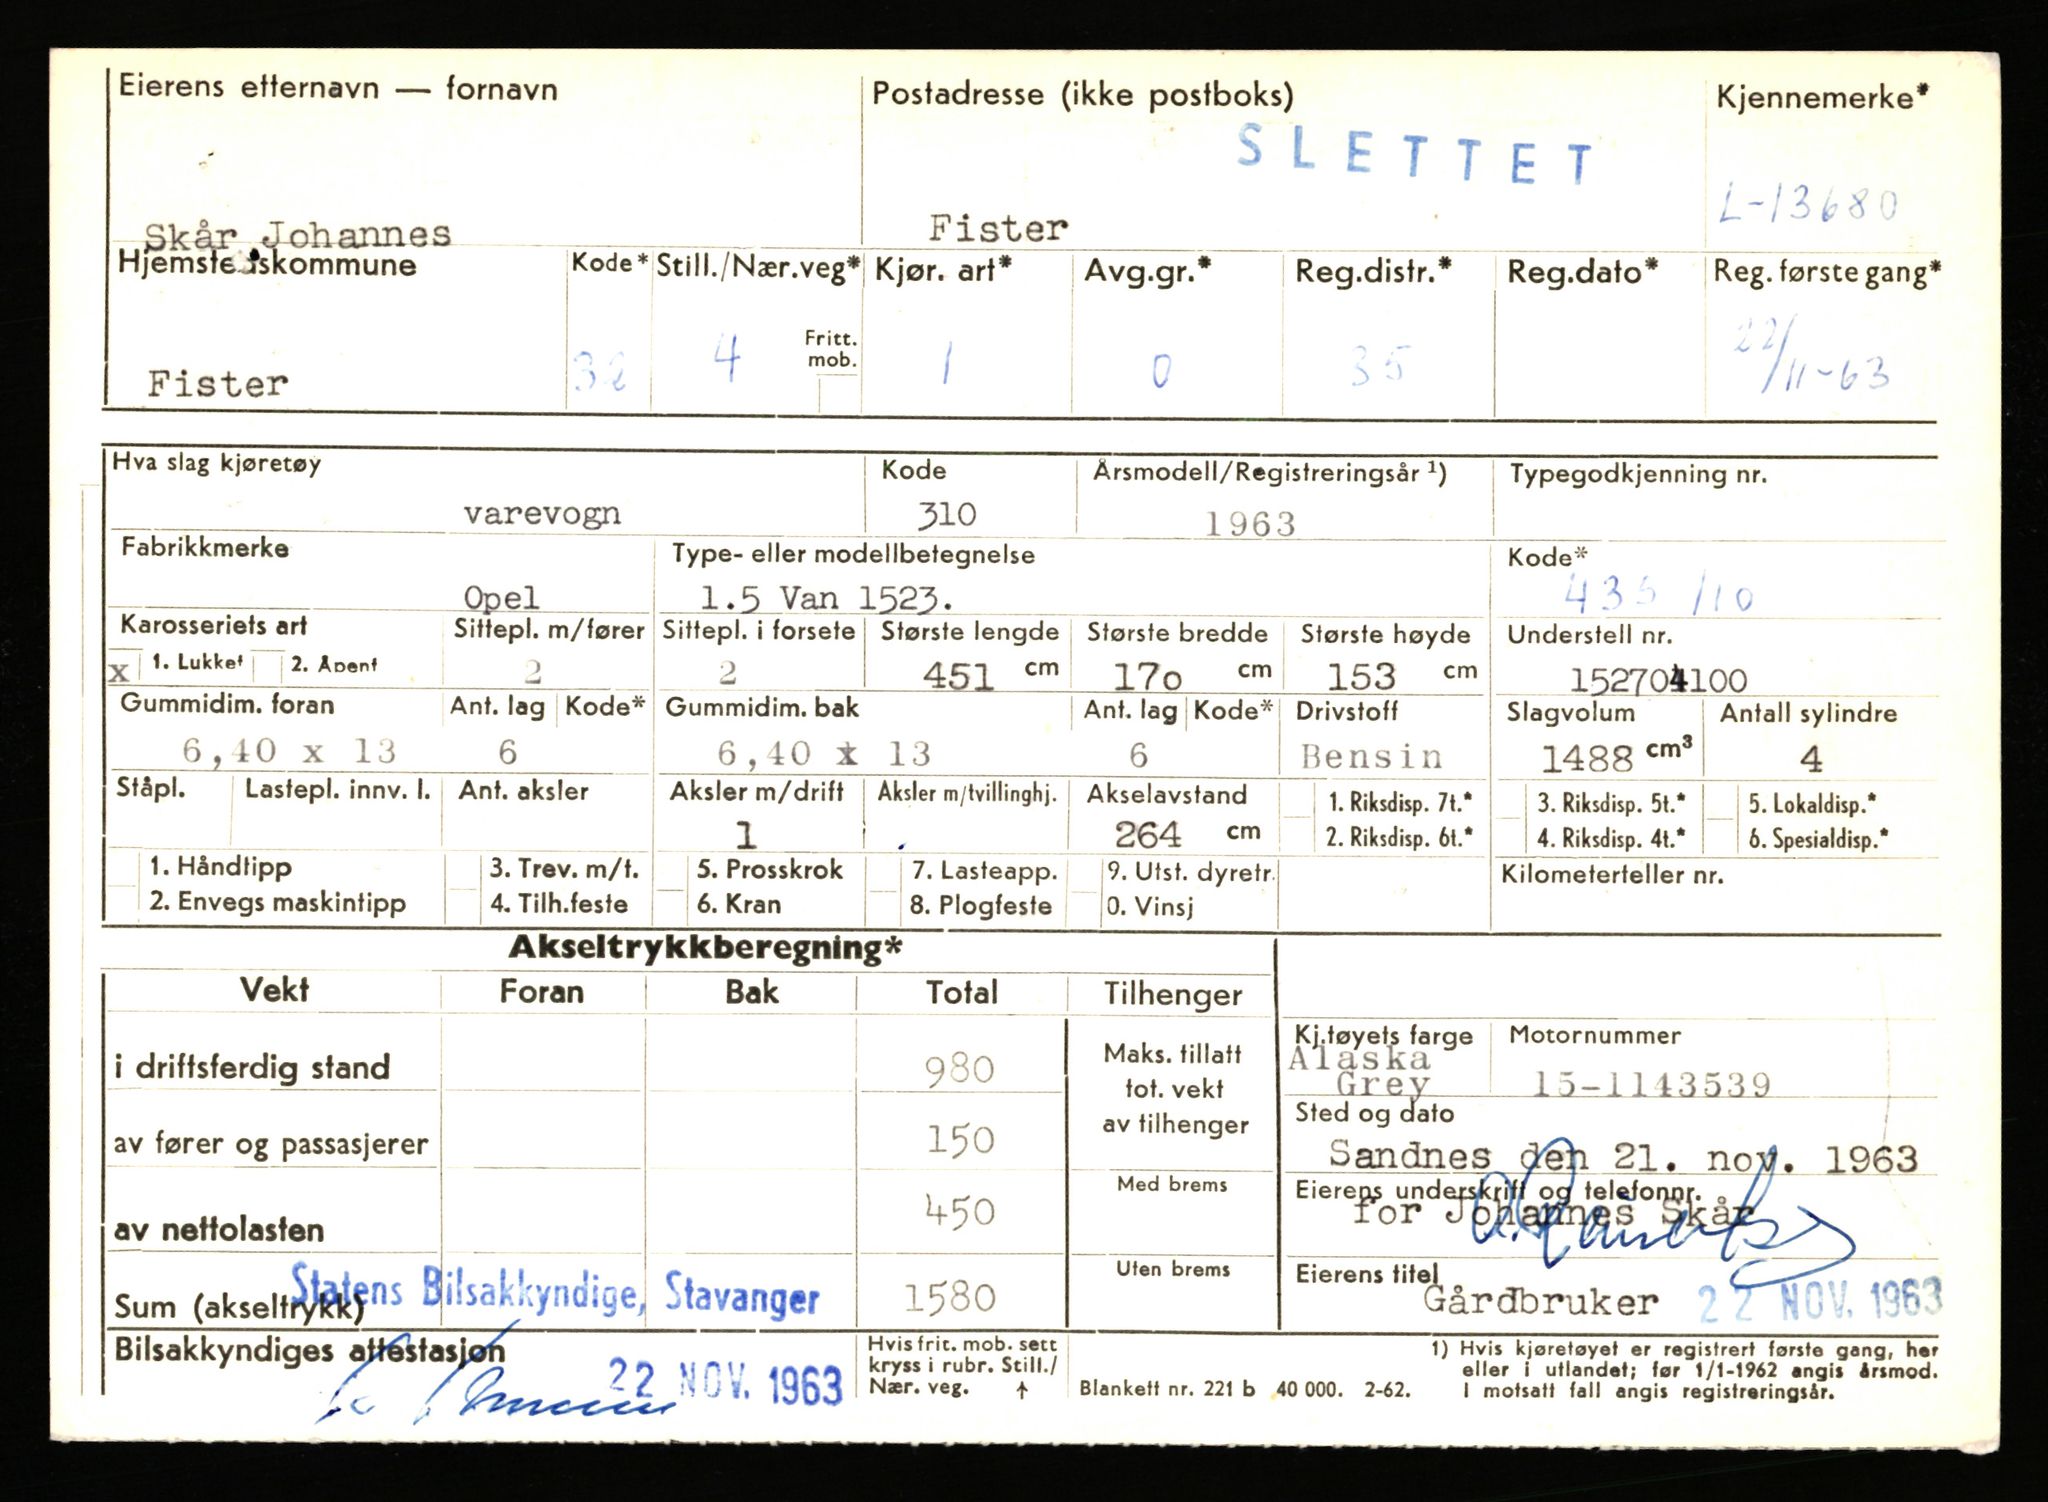 Eierens etternavn — fornavn
Postadresse (ikke postboks)
Kjennemerke*
SLETTET
L-13680
Skår Johannes
Fister
Hjemstedskommune
Kode*
Still./Nær.veg*
Kjør. art*
Avg.gr.*
Reg.distr.*
Reg.dato*
Reg. første gang*
Fister
32
4
Fritt. mob.
1
0
35
22/11-63
Hva slag kjøretøy
Kode
Årsmodell/Registreringsår 1)
Typegodkjenning nr.
varevogn
310
1963
Fabrikkmerke
Type- eller modellbetegnelse
Kode*
Opel
1.5 Van 1523.
435 /10
Karosseriets art
Sittepl. m/fører
Sittepl. i forsete
Største lengde
Største bredde
Største høyde
Understell nr.
x 1. Lukket 2. Åpent
2
2
451 cm
170 cm
153 cm
152704100
Gummidim. foran
Ant. lag
Kode*
Gummidim. bak
Ant. lag
Kode*
Drivstoff
Slagvolum
Antall sylindre
6,40 x 13
6
6,40 x 13
6
Bensin
1488 cm³
4
Ståpl.
Lastepl. innv. l.
Ant. aksler
Aksler m/drift
Aksler m/tvillinghj.
Akselavstand
1. Riksdisp. 7t.*
3. Riksdisp. 5t.*
5. Lokaldisp.*
1
264 cm
2. Riksdisp. 6t.*
4. Riksdisp. 4t.*
6. Spesialdisp.*
1. Håndtipp
3. Trev. m/t.
5. Prosskrok
7. Lasteapp.
9. Utst. dyretr.
Kilometerteller nr.
2. Envegs maskintipp
4. Tilh.feste
6. Kran
8. Plogfeste
0. Vinsj
Akseltrykkberegning*
Vekt
Foran
Bak
Total
Tilhenger
Kj.tøyets farge
Motornummer
i driftsferdig stand
980
Maks. tillatt
tot. vekt
av tilhenger
Alaska
Grey
15-1143539
Sted og dato
av fører og passasjerer
150
Sandnes den 21. nov. 1963
Med brems
Eierens underskrift og telefonnr.
av nettolasten
450
for Johannes Skår
Uten brems
Eierens titel
Sum (akseltrykk)
Statens Bilsakkyndige, Stavanger
1580
Gårdbruker
22 NOV. 1963
Bilsakkyndiges attestasjon
22 NOV. 1963
Hvis frit. mob. sett
kryss i rubr. Still./
Nær. veg. ↑
Blankett nr. 221 b 40 000. 2-62.
1) Hvis kjøretøyet er registrert første gang, her
eller i utlandet; før 1/1-1962 angis årsmod.
I motsatt fall angis registreringsår.